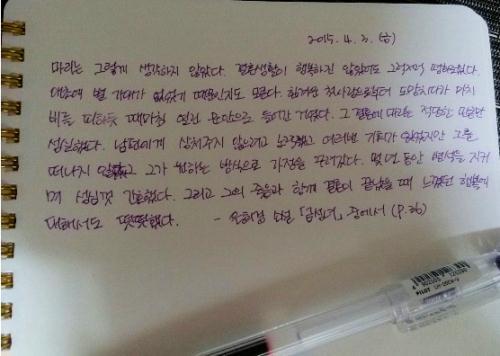 2015. 4. 3. (금)
마리는 그렇게 생각하지 않았다. 결혼생활이 행복하진 않았어도 그럭저럭 평화로웠다.
애초에 별 기대가 없었기 때문인지도 모른다. 첫사랑으로부터 도망치다가 마치
비를 피하듯 때마침 열린 문안으로 들어간 거였다. 그 결혼에 마리는 적당한 만큼만
성실했다. 남편에게 상처주지 않으려고 노력했고 여러번 기회가 있었지만 그를
떠나지 않았고 그가 원하는 방식으로 가정을 꾸려갔다. 몇 년 동안 병석을 지키
며 성심껏 간호했다. 그리고 그의 죽음과 함께 결혼이 끝났을 때 느꼈던 행복에
대해서도 떳떳했다. - 은희경 소설 「금성녀」 중에서 (p.36)
PILOT